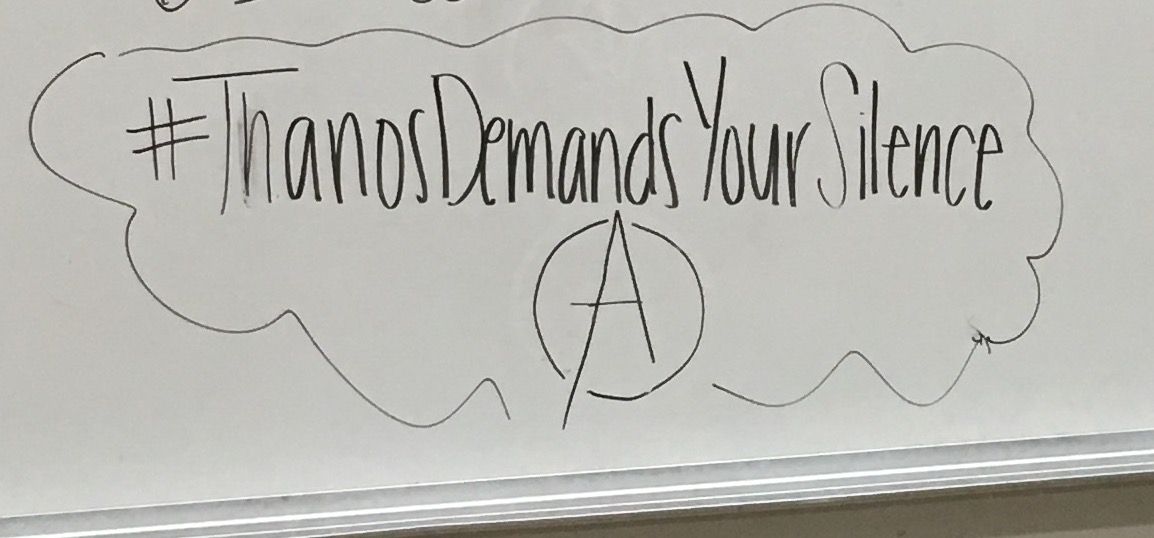 #ThanosDemandsYourSilence
A